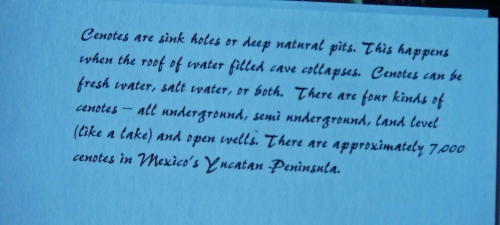 Cenotes are sink holes or deep natural pits. This happens
when the roof of water filled cave collapses. Cenotes can be
fresh water, salt water, or both. There are four kinds of
cenotes – all underground, semi underground, land level
(like a lake) and open wells. There are approximately 7,000
cenotes in Mexico's Yucatan Peninsula.